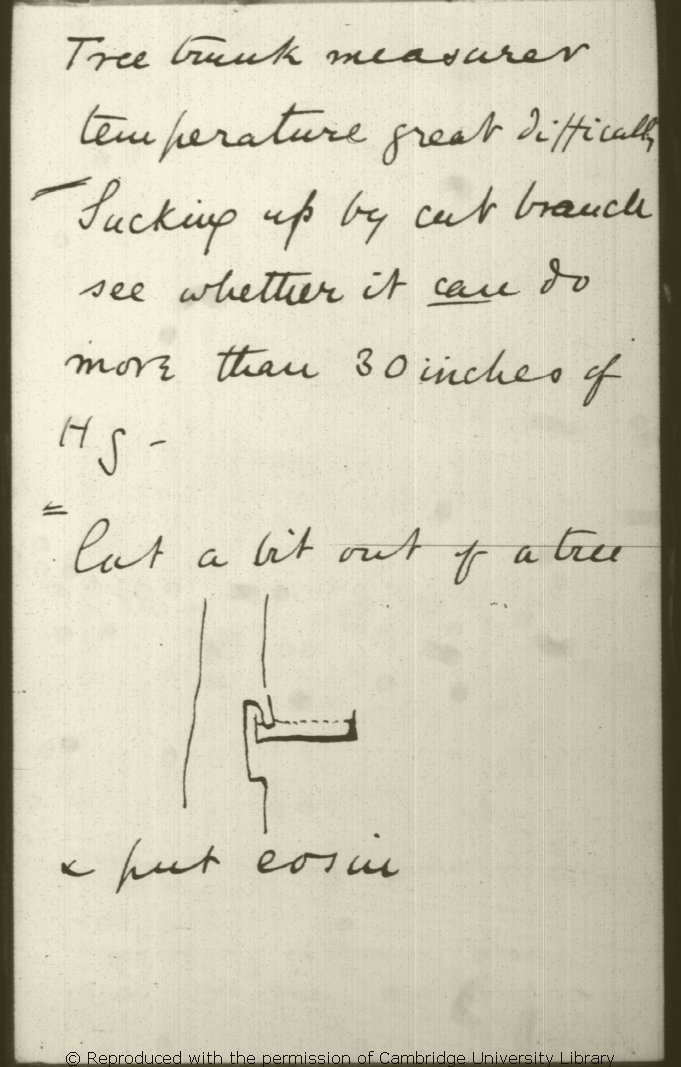 Tree trunk measurer
temperature great difficulty
Sucking up by cut branch
see whether it can do
more than 30 inches of
Hg –
Cut a bit out of a tree
& put eosin
© Reproduced with the permission of Cambridge University Library